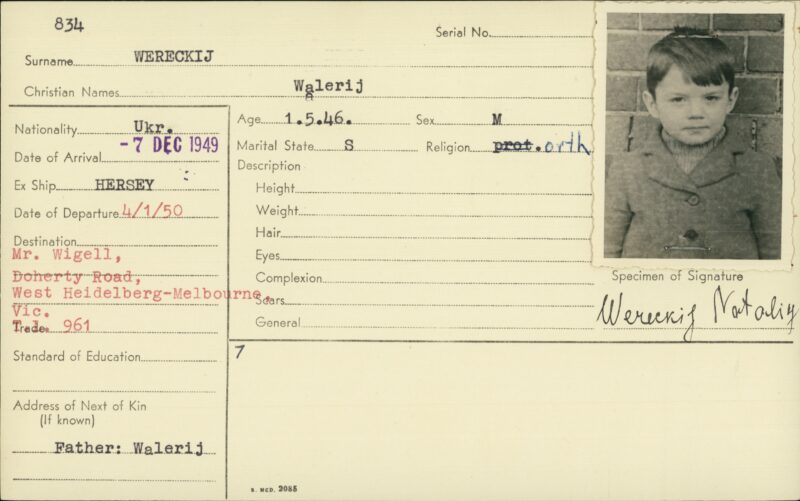 834
Serial No.
Surname WERECKIJ
Christian Names Walerij
Nationality Ukr.
Date of Arrival -7 DEC 1949
Ex Ship HERSEY
Date of Departure 4/1/50
Destination
Mr. Wigell,
Doherty Road,
West Heidelberg-Melbourne.
Vic.
Trade 961
Standard of Education
Address of Next of Kin
(If known)
Father: Walerij
Age 1.5.46. Sex M
Marital State S Religion prot. orth
Description
Height
Weight
Hair
Eyes
Complexion
Scars
General
7
Specimen of Signature
Wereckij Nataliy
S. MCD. 2085